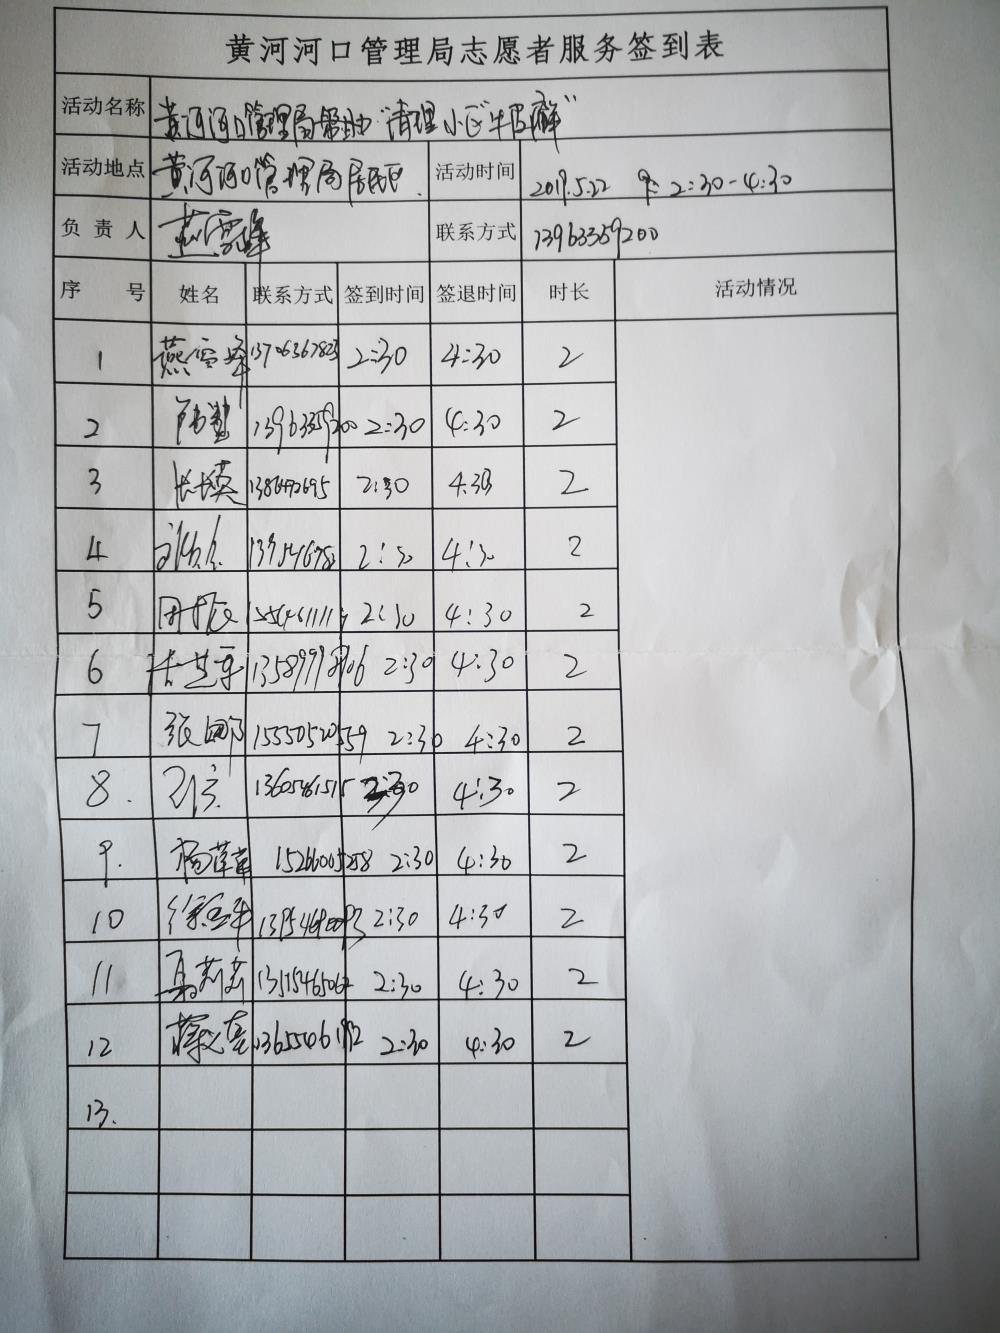 黄河河口管理局志愿者服务签到表
活动名称 黄河河口管理局帮助“清理小区“牛皮癣”
活动地点 黄河河口管理局居民区. 活动时间 2019.5.22 下午 2:30-4:30
负责人 燕雪峰 联系方式 13963359200
序号 姓名 联系方式 签到时间 签退时间 时长 活动情况
1 燕雪峰 13706367823 2:30 4:30 2
2 13963359200 2:30 4:30 2
3 2:30 4:30 2
4 2:30 4:30 2
5 2:30 4:30 2
6 2:30 4:30 2
7 张鹏 15550520559 2:30 4:30 2
8. 13605461515 2:30 4:30 2
9. 杨菲菲 15266005258 2:30 4:30 2
10 2:30 4:30 2
11 马莉莉 13515465062 2:30 4:30 2
12 2:30 4:30 2
13.